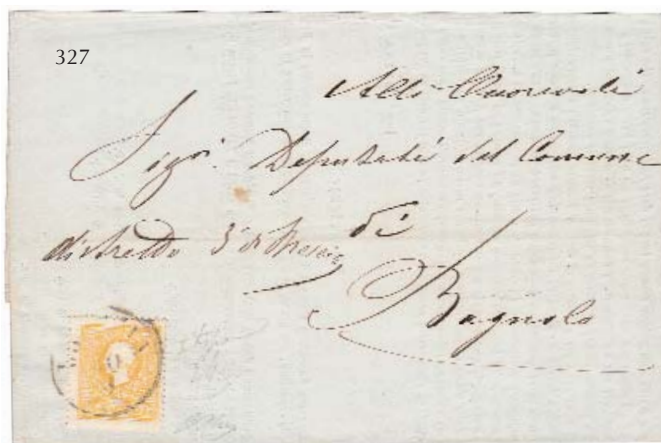 327
Alli Onorevoli
Sigri Deputati del Comune
di
distretto 3° di Brescia
Bagnolo